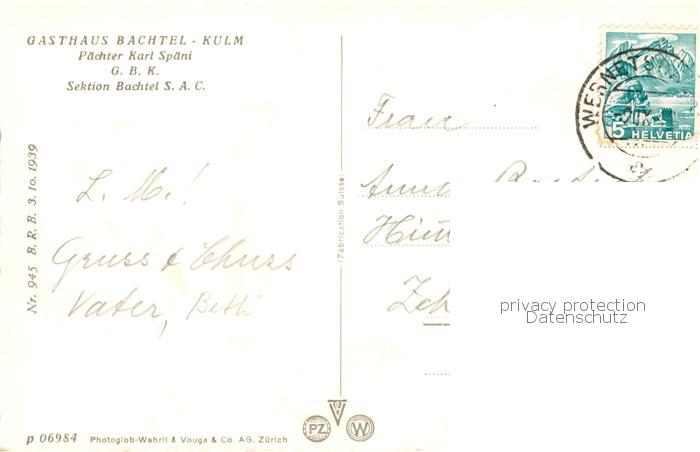 GASTHAUS BACHTEL - KULM
Pächter Karl Späni
G. B. K.
Sektion Bachtel S. A. C.
Nr. 945 B. R. B. 3. 10. 1939
L. M.!
Gruss & Chuss
Vater, Betti
p 06984 Photoglob-Wehrli & Vouga & Co. AG. Zürich
Fabrication Suisse
PZ W
WERNETS
5 HELVETIA
Frau
Anna
privacy protection
Datenschutz